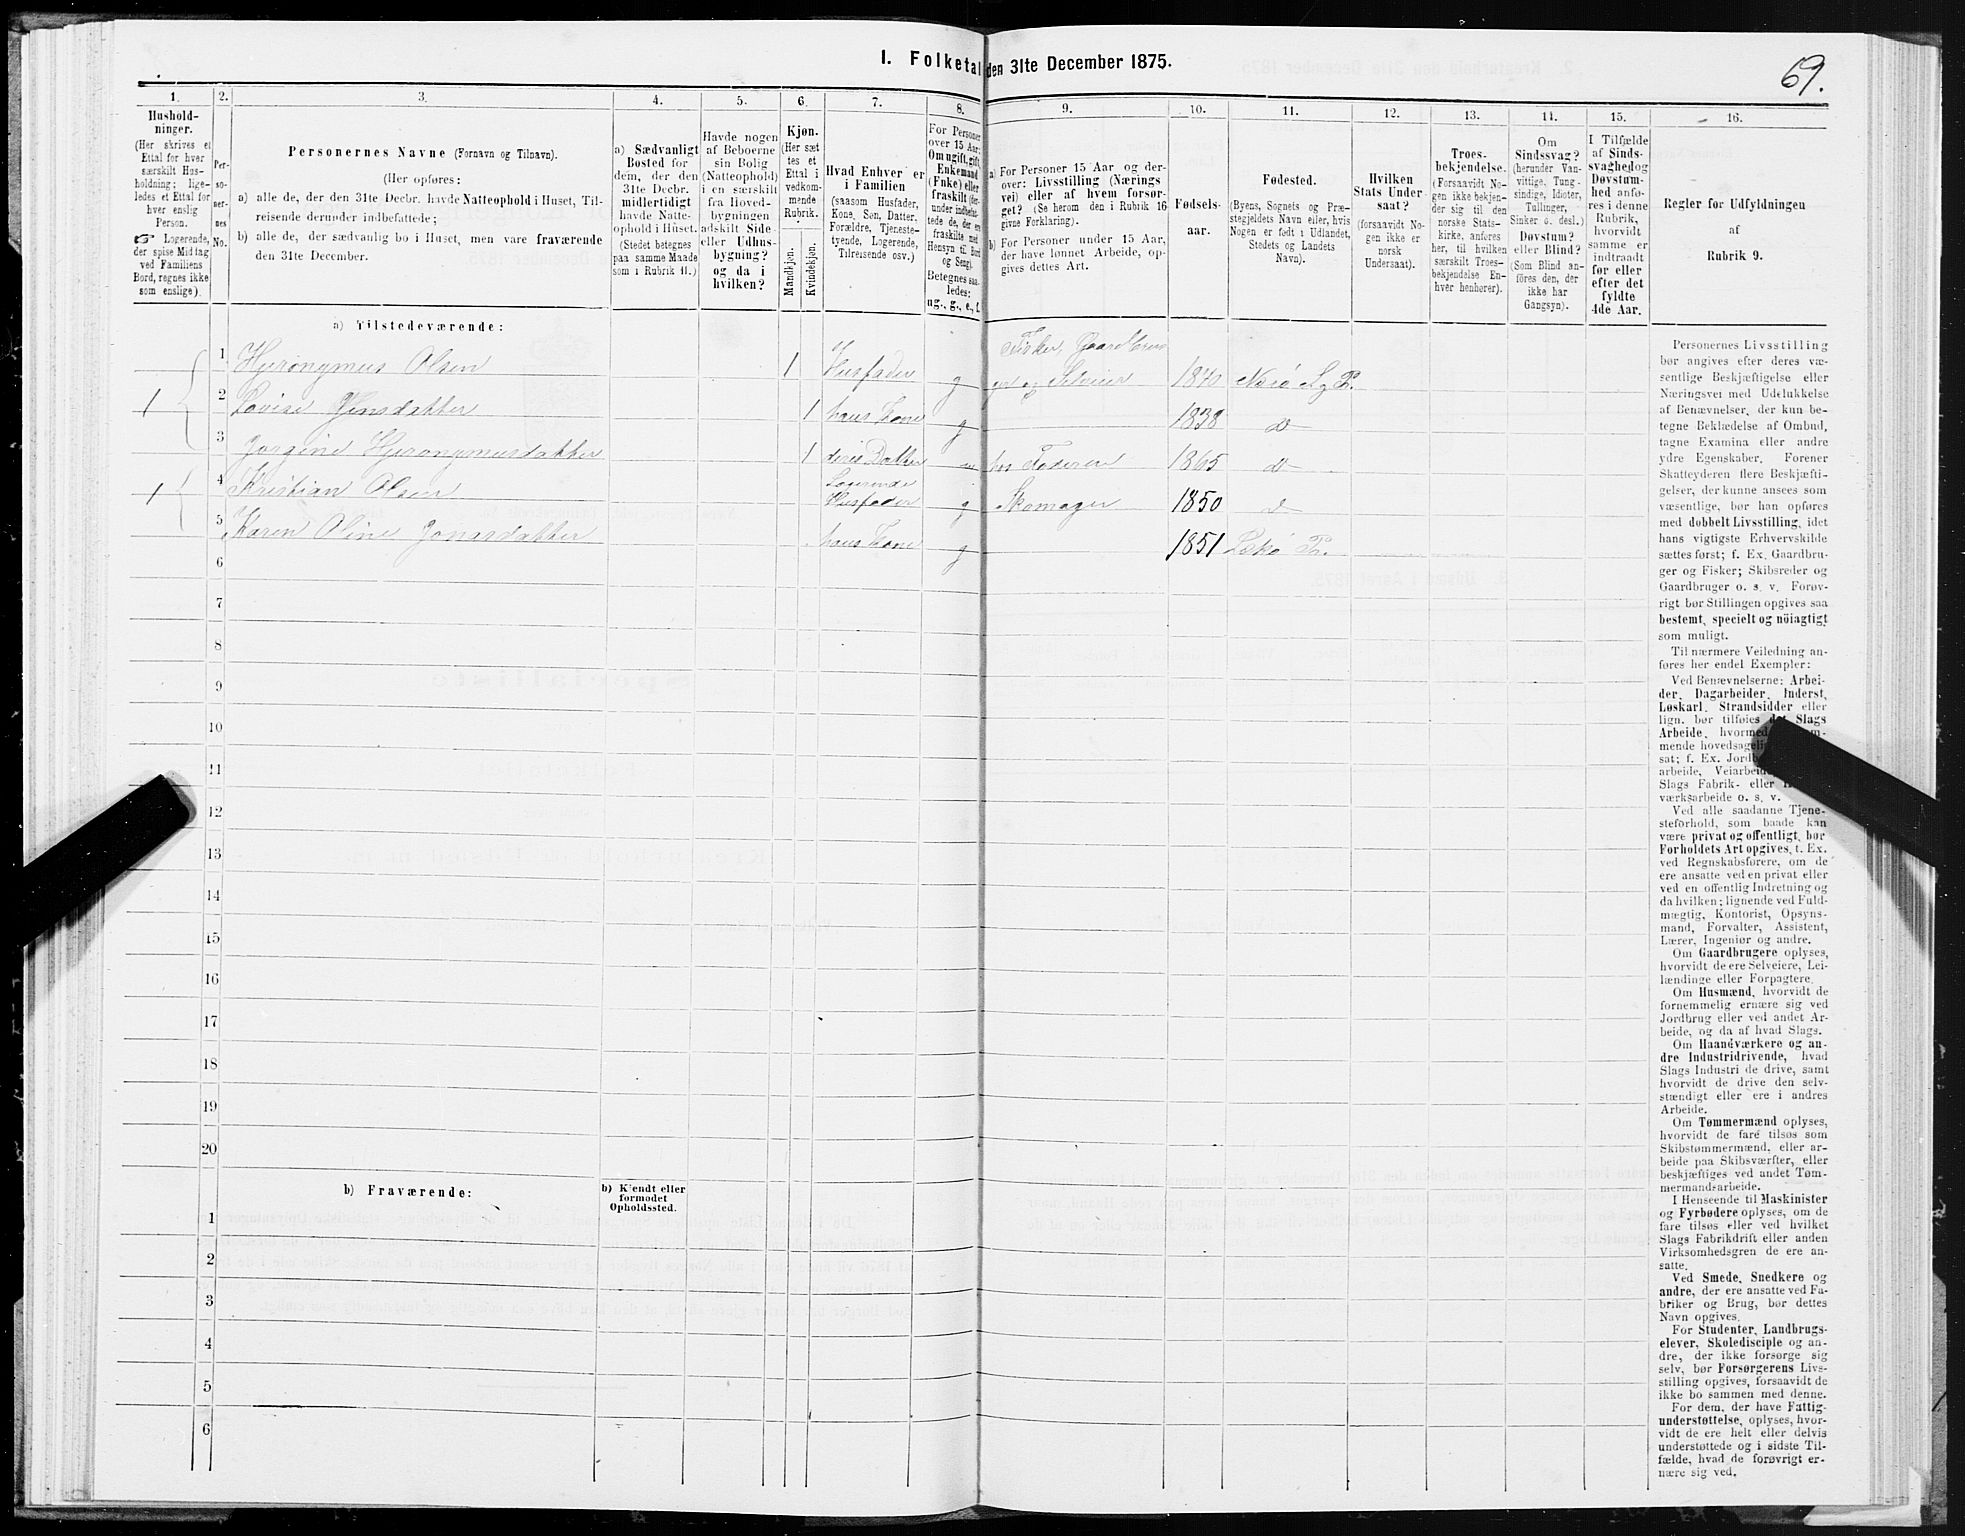 I. Folketal den 31te December 1875.
69.
1.
2.
3.
4.
5.
6.
7.
8.
9.
10.
11.
12.
13.
14.
15.
16.
Hushold-
ninger.
(Her skrives et
Ettal for hver
særskilt Hus-
holdning; lige-
ledes et Ettal for
hver enslig
Person.
☞ Logerende,
der spise Middag
ved Familiens
Bord, regnes ikke
som enslige).
Per-
so-
ner-
nes
No.
Personernes Navne (Fornavn og Tilnavn).
(Her opføres:
a) alle de, der den 31te Decbr. havde Natteophold i Huset, Til-
reisende derunder indbefattede;
b) alle de, der sædvanlig bo i Huset, men vare fraværende
den 31te December.
a) Sædvanligt
Bosted for
dem, der den
31te Decbr.
midlertidigt
havde Natte-
ophold i Huset.
(Stedet betegnes
paa samme Maade
som i Rubrik 11.)
Havde nogen
af Beboerne
sin Bolig
(Natteophold)
i en særskilt
fra Hoved-
bygningen
adskilt Side-
eller Udhus-
bygning?
og da i
hvilken?
Kjøn.
(Her sæt-
tes et
Ettal i
vedkom-
mende
Rubrik.
Mandkjøn.
Kvindekjøn.
Hvad Enhver er
i Familien
(saasom Husfader,
Kone, Søn, Datter,
Forældre, Tjeneste-
tyende, Logerende,
Tilreisende osv.)
For Personer
over 15 Aar:
Om ugift, gift,
Enkemand
(Enke) eller
fraskilt (der-
under indbefat-
tede de, der ere
fraskilte med
Hensyn til Bord
og Seng).
Betegnes saa-
ledes:
ug., g., e., f.
a) For Personer 15 Aar og der-
over: Livsstilling (Nærings-
vei) eller af hvem forsør-
get? (Se herom den i Rubrik 16
givne Forklaring).
b) For Personer under 15 Aar,
der have lønnet Arbeide, op-
gives dettes Art.
Fødsels-
aar.
Fødested.
(Byens, Sognets og Præ-
stegjeldets Navn eller, hvis
Nogen er født i Udlandet,
Stedets og Landets
Navn).
Hvilken
Stats Under-
saat?
(forsaavidt No-
gen ikke er
norsk
Undersaat).
Troes-
bekjendelse.
(Forsaavidt No-
gen ikke bekjen-
der sig til den
norske Stats-
kirke, anføres
her, til hvilken
særskilt Troes-
bekjendelse En-
hver henhører).
Om
Sindssvag?
(herunder Van-
vittige, Tung-
sindige, Idioter,
Tullinger,
Sinker o. desl.)
Døvstum?
eller Blind?
(Som Blind an-
føres den, der
ikke har
Gangsyn).
I Tilfælde
af Sinds-
svaghed og
Døvstum-
hed anfø-
res i denne
Rubrik,
hvorvidt
samme er
indtraadt
før eller
efter det
fyldte
4de Aar.
Regler for Udfyldningen
af
Rubrik 9.
a) Tilstedeværende:
1 Hjeronymus Olsen 1 Husfader g Fisker, Gaardbru-
ger og Selveier 1840 Næsø S. & P.
1 2 Lovise Jensdatter 1 hans Kone g 1838 do
3 Jorgine Hjeronymusdatter 1 deres Datter hos Faderen 1865 do
1 4 Kristian Olsen Logerende
Husfader g Skomager 1850 do
5 Karen Oline Jonasdatter hans Kone g 1851 Lekø P.
6
7
8
9
10
11
12
13
14
15
16
17
18
19
20
b) Fraværende:
b) Kjendt eller
formodet
Opholdssted.
1
2
3
4
5
6
Personernes Livsstilling
bør angives efter deres væ-
sentlige Beskjæftigelse eller
Næringsvei med Udelukkelse
af Benævnelser, der kun be-
tegne Beklædelse af Ombud,
tagne Examina eller andre
ydre Egenskaber. Forener
Skatteyderen flere Beskjæfti-
gelser, der kunne ansees som
væsentlige, bør han opføres
med dobbelt Livsstilling, idet
hans vigtigste Erhvervskilde
sættes først; f. Ex. Gaardbru-
ger og Fisker; Skibsreder og
Gaardbruger o. s. v. Forøv-
rigt bør Stillingen opgives saa
bestemt, specielt og nöiagtigt
som muligt.
Til nærmere Veiledning an-
føres her endel Exempler:
Ved Benævnelserne: Arbei-
der, Dagarbeider, Inderst,
Løskarl, Strandsidder eller
lign. bør tilføies det Slags
Arbeide, hvormed
mende hovedsagelig
sat; f. Ex.
arbeide, Veiarbeide
Slags Fabrik- eller
værksarbeide o. s. v.
Ved alle saadanne Tjene-
steforhold, som baade kan
være privat og offentligt, bør
Forholdets Art opgives, t. Ex.
ved Regnskabsførere, om de
ere ansatte ved en privat eller
ved en offentlig Indretning og
da hvilken; lignende ved Fuld-
mægtig, Kontorist, Opsyns-
mand, Forvalter, Assistent,
Lærer, Ingeniør og andre.
Om Gaardbrugere oplyses,
hvorvidt de ere Selveiere, Lei-
lændinge eller Forpagtere.
Om Husmænd, hvorvidt de
fornemmelig ernære sig ved
Jordbrug eller ved andet Ar-
beide, og da af hvad Slags.
Om Haandværkere og an-
dre Industridrivende, hvad
Slags Industri de drive, samt
hvorvidt de drive den selv-
stændigt eller ere i andres
Arbeide.
Om Tømmermænd oplyses,
hvorvidt de fare tilsøs som
Skibstømmermænd, eller ar-
beide paa Skibsværfter, eller
beskjæftiges ved andet Tøm-
mermandsarbeide.
I Henseende til Maskinister
og Fyrbødere oplyses, om de
fare tilsøs eller ved hvilket
Slags Fabrikdrift eller anden
Virksomhedsgren de ere an-
satte.
Ved Smede, Snedkere og
andre, der ere ansatte ved Fa-
briker og Brug, bør dettes
Navn opgives.
For Studenter, Landbrugs-
elever, Skoledisciple og an-
dre, der ikke forsørge sig
selv, bør Forsørgerens Livs-
stilling opgives, forsaavidt de
ikke bo sammen med denne.
For dem, der have Fattig-
understøttelse, oplyses, hvor-
vidt de ere helt eller delvis
understøttede og i sidste Til-
fælde, hvad de forøvrigt er-
nære sig ved.